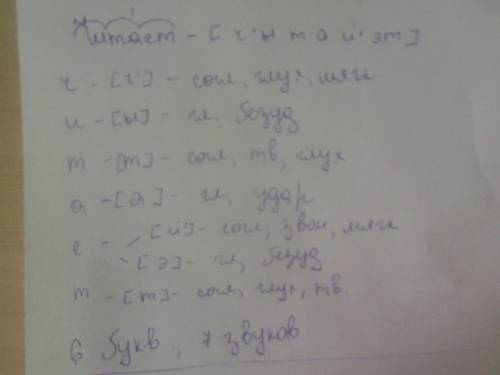 Читает - [ч'ы т а й'эт]
ч - [ч'] - согл, глух, мягк
и - [ы] - гл, безуд
т - [т] - согл, тв, глух
а - [а] - гл, удар
е - [й'] - согл, звон, мягк
[э] - гл, безуд
т - [т] - согл, глух, тв.
6 букв, 7 звуков